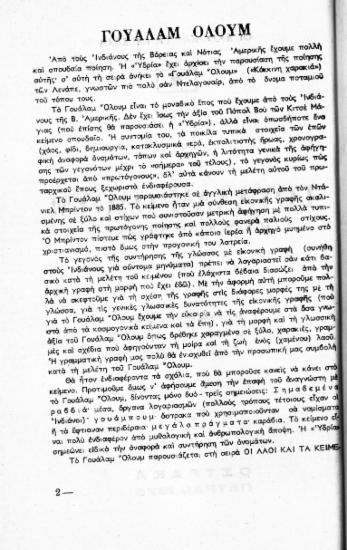 ΓΟΥΑΛΑΜ ΟΛΟΥΜ
Ἀπό τούς Ἰνδιάνους τῆς Βόρειας καί Νότιας Ἀμερικῆς ἔχουμε πολλή
καί σπουδαία ποίηση. Ἡ «Ὑδρία» ἔχει ἀρχίσει τήν παρουσίαση τῆς ποίησης
αὐτῆς· σ' αὐτή τή σειρά ἀνήκει τό «Γουάλαμ Ὄλουμ» («Κόκκινη χαρακιά»)
τῶν Λενάπε, γνωστῶν πιό πολύ σάν Ντελαγουαίρ, ἀπό τό ὄνομα ποταμιοῦ
τοῦ τόπου τους.
Τό Γουάλαμ Ὄλουμ εἶναι τό μοναδικό ἔπος πού ἔχουμε ἀπό τούς Ἰνδιά-
νους τῆς Β. Ἀμερικῆς. Δέν ἔχει ἴσως τήν ἀξία τοῦ Πόπολ Βού τῶν Κιτσέ Μά-
γιας (πού ἐπίσης θά παρουσιάσει ἡ «Ὑδρία»), ἀλλά εἶναι ὁπωσδήποτε ἕνα
κείμενο σπουδαῖο. Ἡ συντομία του, τά ποικίλα τυπικά στοιχεῖα τῶν ἐπῶν
(χάος, φίδι, δημιουργία, κατακλυσμικά νερά, ἐκπολιτιστής ἥρωας, χρονογρα-
φική ἀναφορά ὀνομάτων, τόπων καί ἀρχηγῶν, ἡ λιτότητα γενικά τῆς ἀφήγη-
σης τῶν γεγονότων μέχρι τό «σήμερα» τοῦ τέλους), τό γεγονός κυρίως πώς
προέρχεται ἀπό «πρωτόγονους», ὅλ' αὐτά κάνουν τή μελέτη αὐτοῦ τοῦ πρω-
ταρχικοῦ ἔπους ξεχωριστά ἐνδιαφέρουσα.
Τό Γουάλαμ Ὄλουμ παρουσιάστηκε σέ ἀγγλική μετάφραση ἀπό τόν Ντά-
νιελ Μπρίντον τό 1885. Τό κείμενο ἦταν μιά σύνθεση εἰκονικῆς γραφῆς σκαλι-
σμένης σέ ξύλο καί στίχων πού συνιστοῦσαν μετρική ἀφήγηση μέ πολλά τυπι-
κά στοιχεῖα τῆς πρωτόγονης ποίησης καί πολλούς φανερά παλιούς στίχους.
Ὁ Μπρίντον πίστευε πώς γράφτηκε ἀπό κάποιο ἱερέα ἤ ἀρχηγό μυημένο στό
χριστιανισμό, πιστό ὅμως στήν προγονική του λατρεία.
Τό γεγονός τῆς συντήρησης τῆς γλώσσας μέ εἰκονική γραφή (συνήθη
στούς Ἰνδιάνους γιά σύντομα μηνύματα) πρέπει νά λογαριαστεῖ σάν κάτι δα-
σικό κατά τή μελέτη τοῦ ποιήματος (πού ἐλάχιστα βέβαια διασώζει ἀπό τήν
ἀρχική γραφή στή μορφή πού ἔχει ἐδῶ). Μέ τήν ἀφορμή αὐτή μποροῦμε πολ-
λά νά σκεφτοῦμε γιά τή σχέση τῆς γραφῆς στίς διάφορες μορφές της μέ τή
γλώσσα, γιά τίς γενικές γλωσσικές δυνατότητες τῆς εἰκονικῆς γραφῆς (πού
γιά τό Γουάλαμ Ὄλουμ ἔχουμε τήν εὐκαιρία νά τίς ἀναφέρουμε στά ὅσα γνω-
στά ἀπό τά κοσμογονικά κείμενα καί τά ἔπη), γιά τή μορφή καί τή γλωσσική
ἀξία τοῦ Γουάλαμ Ὄλουμ ὅπως βρέθηκε χαραγμένο σέ ξύλο, χαρακιές, γραμ-
μές καί σχέδια πού ἀφηγοῦνταν τή μοίρα καί τή ζωή ἑνός (χαμένου) λαοῦ.
Ἡ γραμματική γραφή μας πολύ θά ἐνισχυθεῖ ἀπό τήν προσωπική μας συμβολή
κατά τή μελέτη τοῦ Γουάλαμ Ὄλουμ.
Θά ἦταν ἐνδιαφέροντα τά σχόλια, πού θά μποροῦσε κανείς νά κάνει στό
κείμενο. Προτιμοῦμε ὅμως ν' ἀφήσουμε ἄμεση τήν ἐπαφή τοῦ ἀναγνώστη μέ
τό Γουάλαμ Ὄλουμ, δίνοντας μόνο δυό - τρεῖς σημειώσεις: Σημαδεμένα
ραβδιά· μέσα, ὄργανα λογαριασμῶν (πολλούς τρόπους τέτοιους εἶχαν οἱ
Ἰνδιάνοι)· γουάμπουμ· ὄστρακα πού χρησιμοποιοῦνταν σά νομίσματα
ἤ τά ἔφτιαναν περιδέραια· μεγάλο πράγματα· καράβια. Τό κείμενο εἶ-
ναι πολύ ἐνδιαφέρον ἀπό μυθολογική καί ἀνθρωπολογική ἄποψη. Ἡ «Ὑδρία»
σημειώνει εἰδικά τήν ἀναφορά καί συντήρηση τῶν ὀνομάτων.
Τό Γουάλαμ Ὄλουμ παρουσιάζεται στή σειρά ΟΙ ΛΑΟΙ ΚΑΙ ΤΑ ΚΕΙΜΕ-
2 —